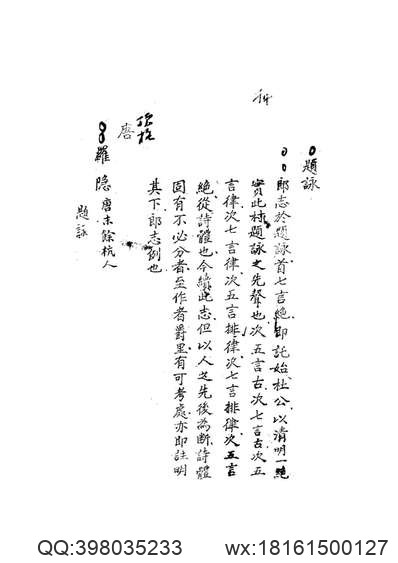 題詠
郎志於題詠首七言絕即託始杜公以清明一絕
實此村題詠之先聲也次五言古次七言古次五
言律次七言律次五言排律次七言排律次五言
絕從詩體也今續此志但以人之先後為斷詩體
固有不必分者至作者爵里有可考處亦即註明
其下郎志例也
唐
羅隱 唐末餘杭人
題詠
QQ:398035233 wx:18161500127